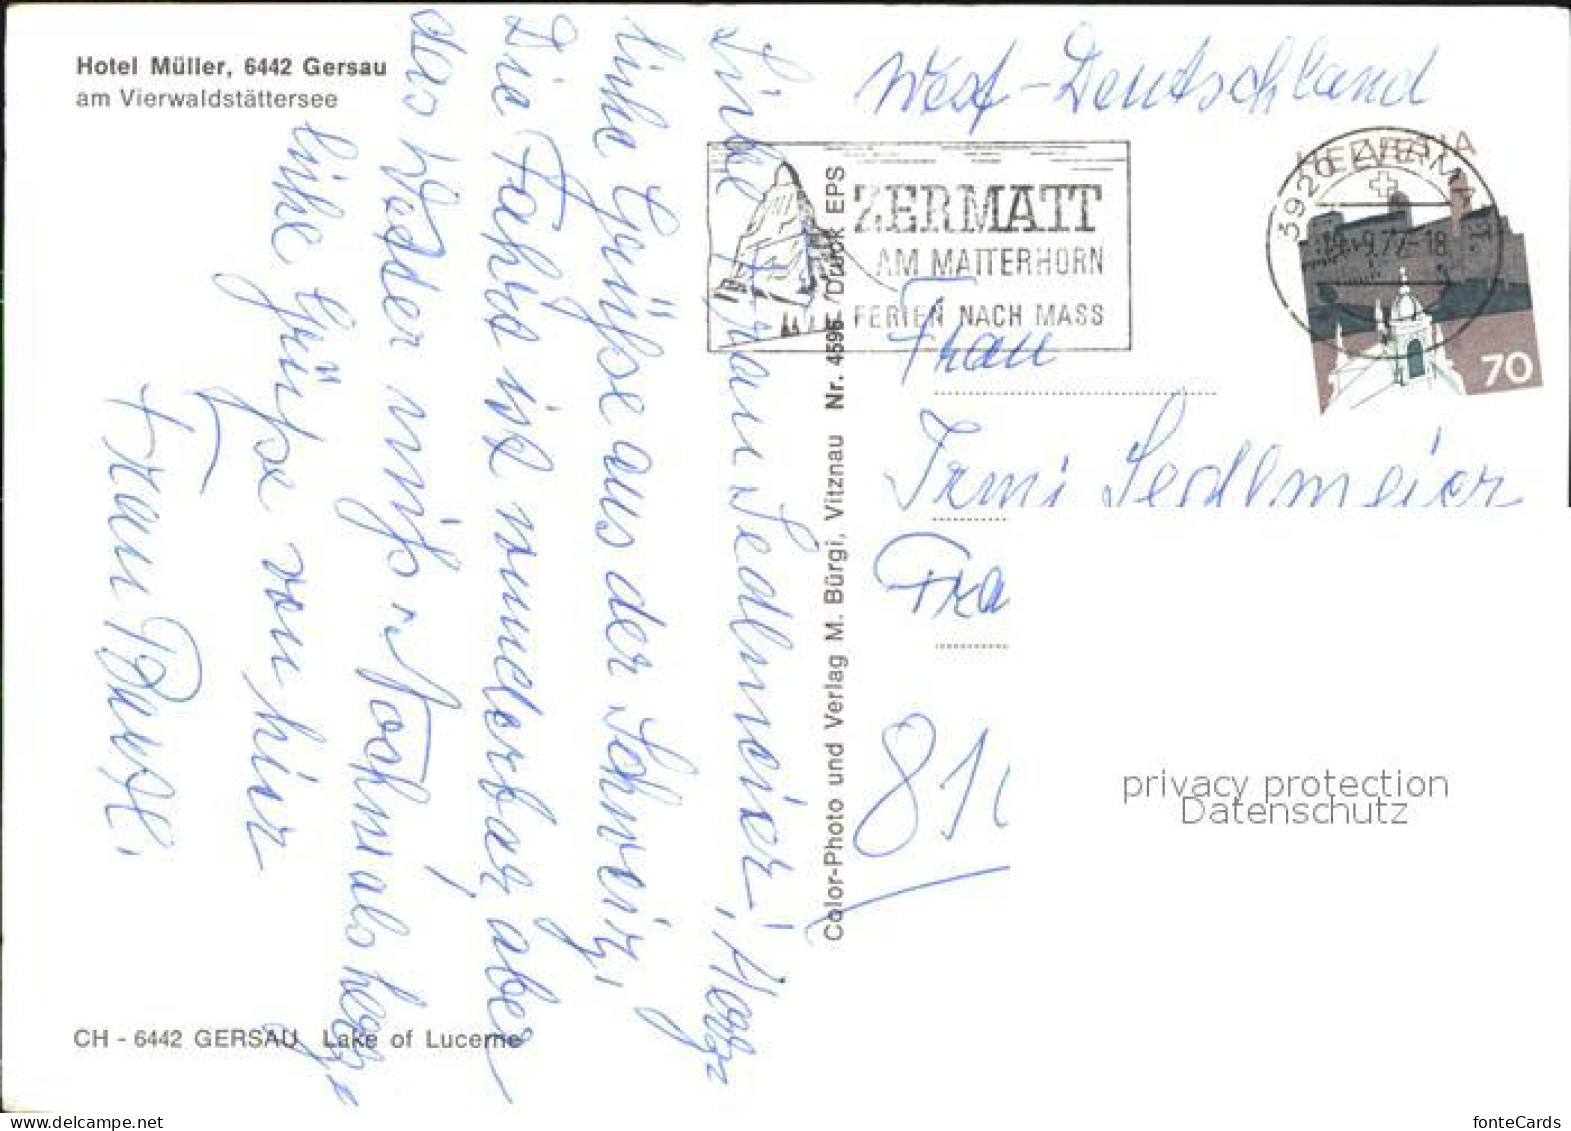 Hotel Müller, 6442 Gersau
am Vierwaldstättersee
Liebe Frau Sedlmeier, Herz
liche Grüße aus der Schweiz,
Die Fahrt ist wunderbar, aber
das Wetter mies. Nochmals herz
liche Grüße von hier
Frau
CH - 6442 GERSAU Lake of Lucerne
Color-Photo und Verlag M. Bürgi, Vitznau Nr. 4596 / Druck EPS
West-Deutschland
ZERMATT
AM MATTERHORN
FERIEN NACH MASS
HELVETIA
3920 ZERMATT
70
Frau
Irmi Sedlmeier
Fra
81
privacy protection
Datenschutz
www.delcampe.net
fonteCards